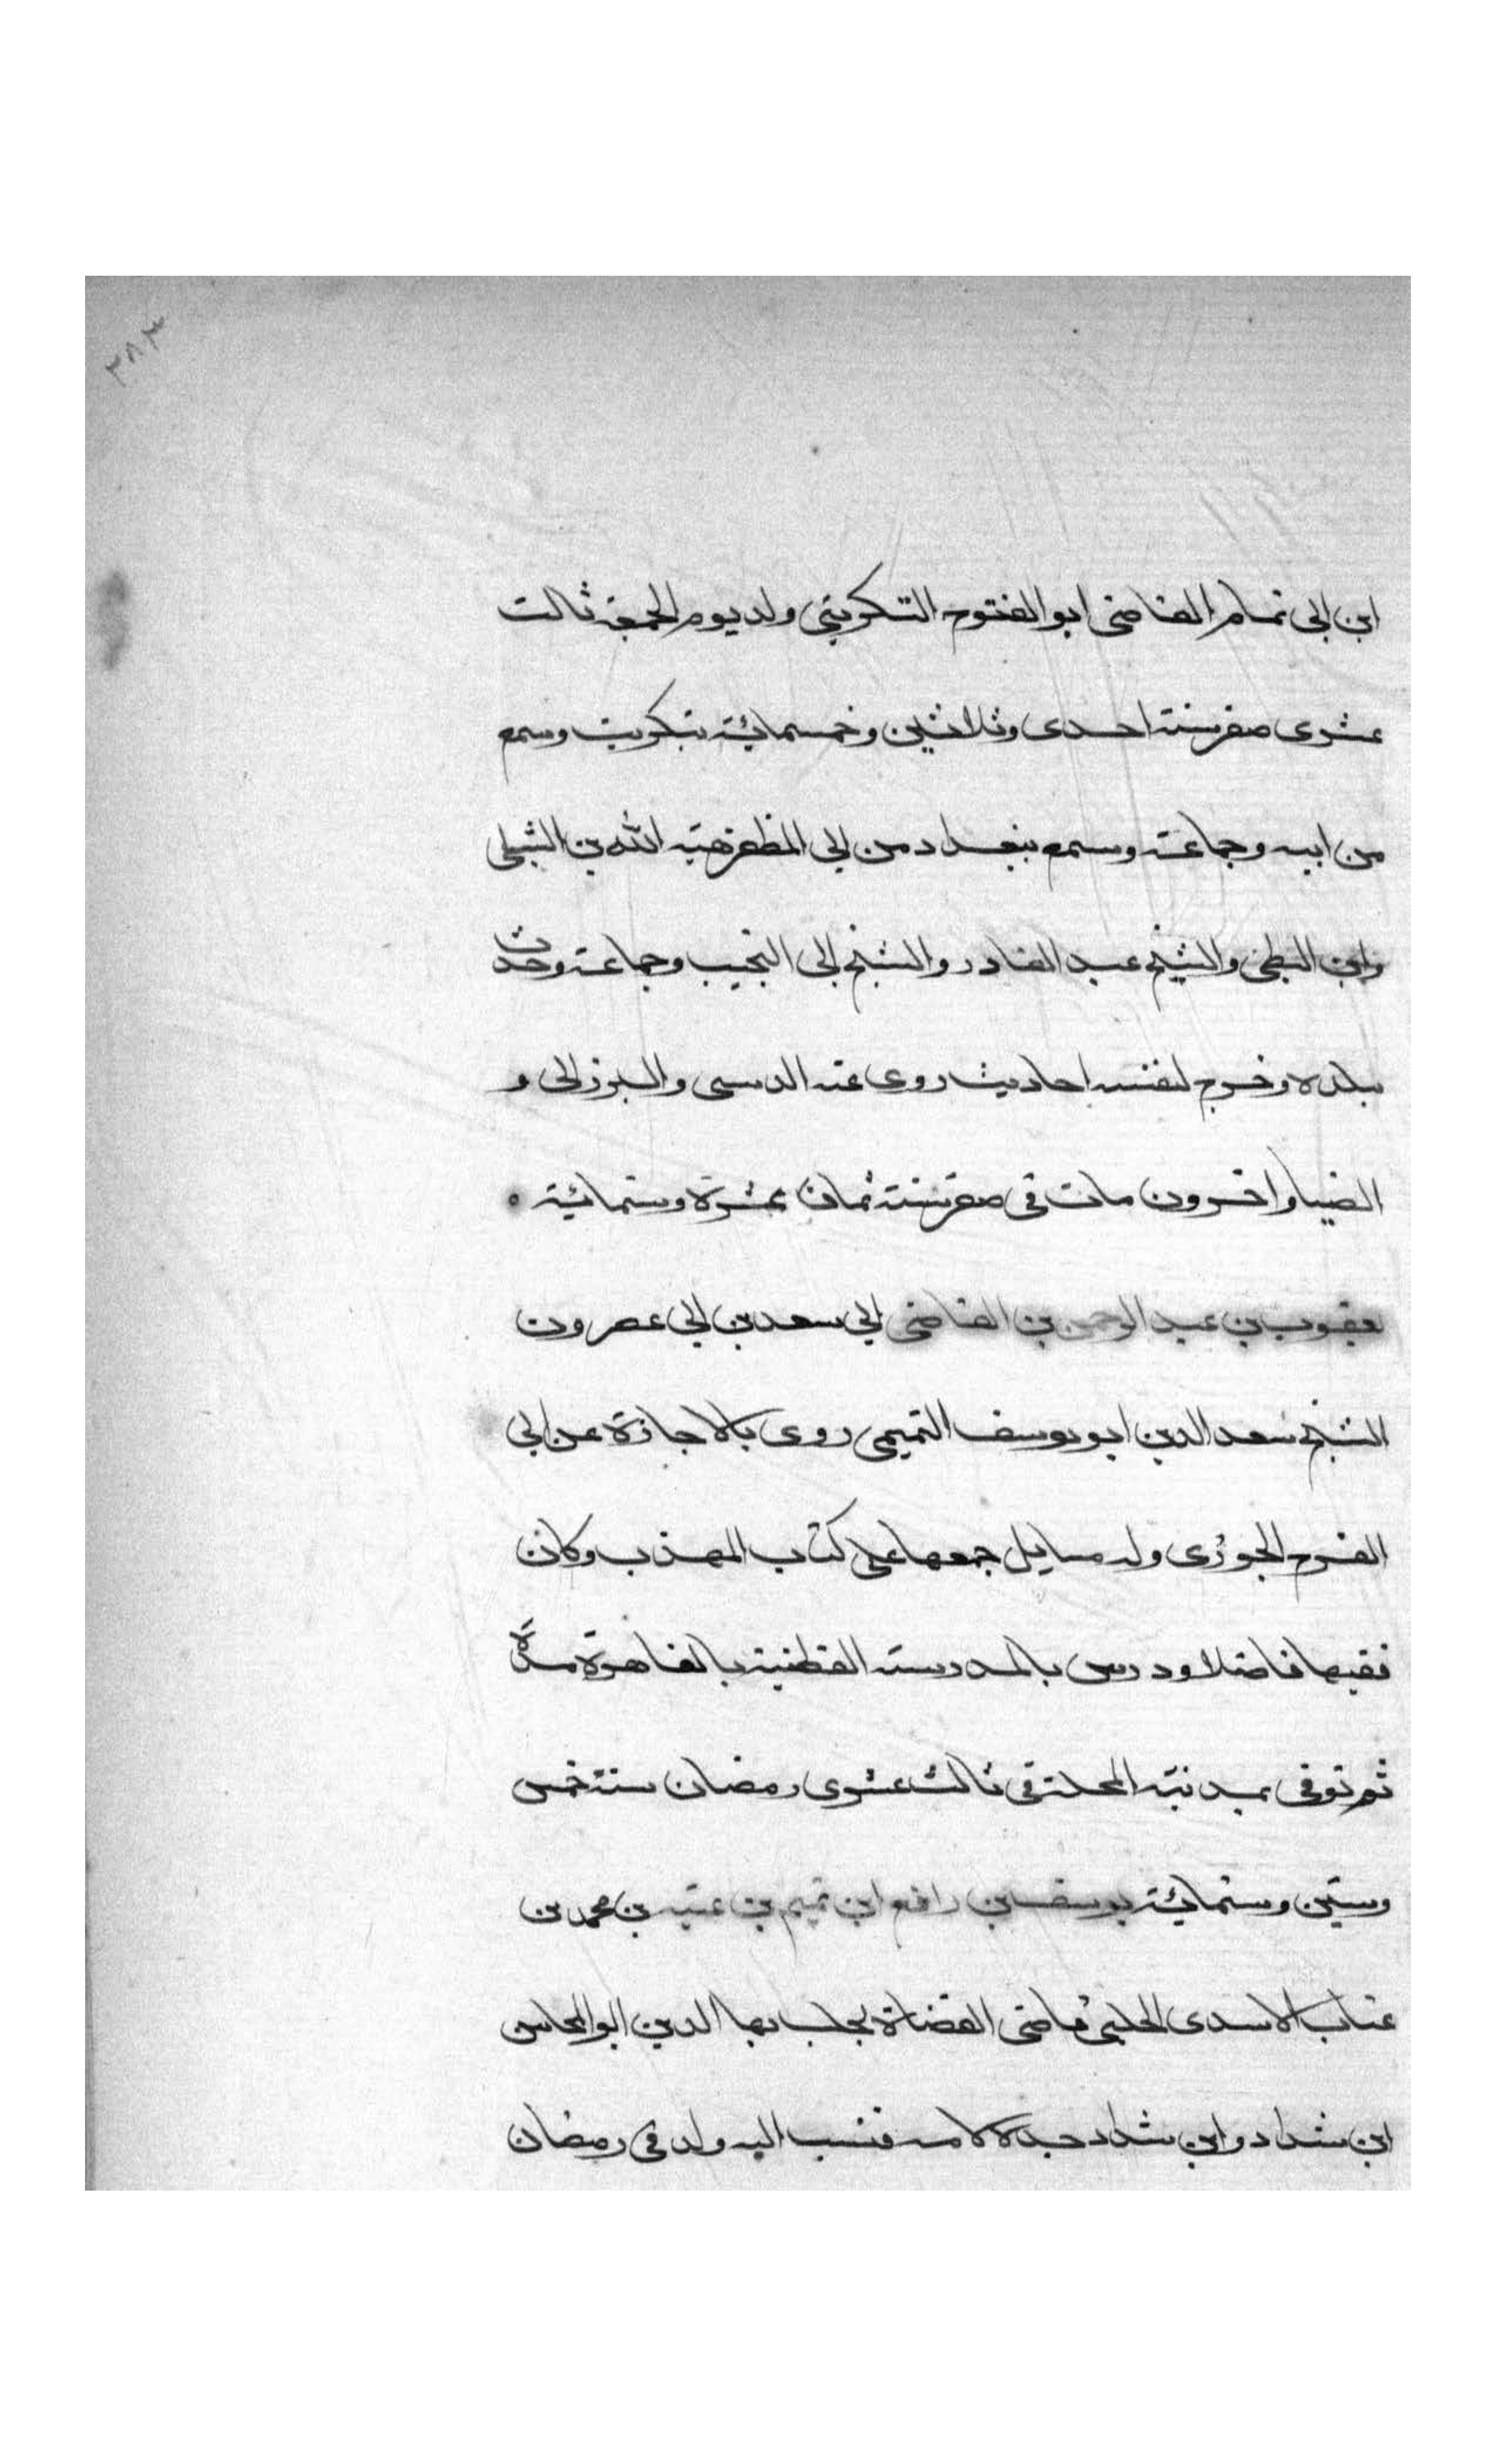 ٣٨٣
ابن ابى تمام القاضى ابو الفتوح التكريتي ولد يوم الجمعة ثالث
عشرى صفر سنة احدى وثلاثين وخمسمائة بتكريت وسمع
من ابيه وجماعة وسمع ببغداد من ابى المظفر هبة الله بن الشبلى
وابن البطى والشيخ عبد القادر والشيخ ابى النجيب وجماعة وحدث
ببلده وخرج لنفسه احاديث روى عنه الدبيثى والبرزالى و
الضيا واخرون مات فى صفر سنة ثمان عشرة وستمائة ٥
يعقوب بن عبد الرحمن بن القاضى ابى سعد بن ابى عصرون
الشيخ سعد الدين ابو يوسف التميمى روى بالاجازة عن ابى
الفرج الجوزى وله مسايل جمعها على كتاب المهذب وكان
فقيها فاضلا ودرس بالمدرسة القطبية بالقاهرة مدة
ثم توفى بمدينة المحلة فى ثالث عشرى رمضان سنة خمس
وستين وستمائة يوسف بن رافع ابن تميم بن عتبة بن محمد بن
عتاب الاسدى الحلبى قاضى القضاة بحلب بها الدين ابو المحاسن
ابن شداد وابن شداد جده لامه فنسب اليه ولد فى رمضان